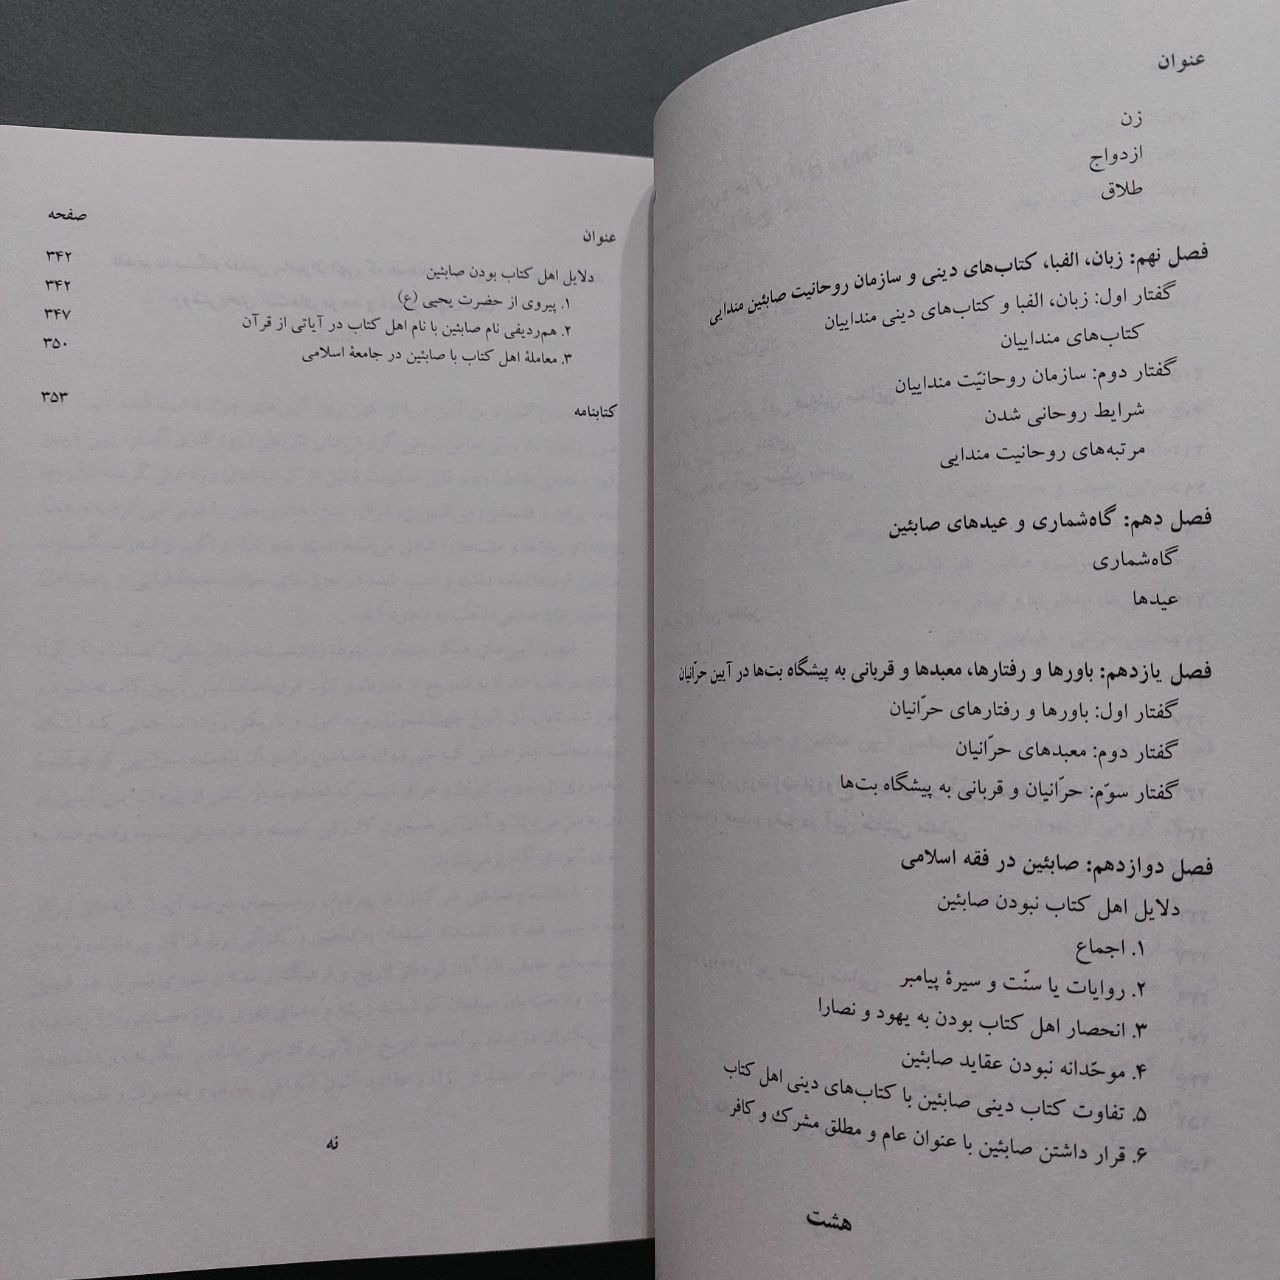 عنوان
زن
ازدواج
طلاق
فصل نهم: زبان، الفبا، کتاب‌های دینی و سازمان روحانیت صابئین مندایی
گفتار اول: زبان، الفبا و کتاب‌های دینی منداییان
کتاب‌های منداییان
گفتار دوم: سازمان روحانیّت منداییان
شرایط روحانی شدن
مرتبه‌های روحانیت مندایی
فصل دهم: گاه‌شماری و عیدهای صابئین
گاه‌شماری
عیدها
فصل یازدهم: باورها و رفتارها، معبدها و قربانی به پیشگاه بت‌ها در آیین حرّانیان
گفتار اول: باورها و رفتارهای حرّانیان
گفتار دوم: معبدهای حرّانیان
گفتار سوّم: حرّانیان و قربانی به پیشگاه بت‌ها
فصل دوازدهم: صابئین در فقه اسلامی
دلایل اهل کتاب نبودن صابئین
۱. اجماع
۲. روایات یا سنّت و سیرهٔ پیامبر
۳. انحصار اهل کتاب بودن به یهود و نصارا
۴. موحّدانه نبودن عقاید صابئین
۵. تفاوت کتاب دینی صابئین با کتاب‌های دینی اهل کتاب
۶. قرار داشتن صابئین با عنوان عام و مطلق مشرک و کافر
هشت
عنوان صفحه
دلایل اهل کتاب بودن صابئین ۳۴۲
۱. پیروی از حضرت یحیی (ع) ۳۴۲
۲. هم‌ردیفی نام صابئین با نام اهل کتاب در آیاتی از قرآن ۳۴۷
۳. معاملهٔ اهل کتاب با صابئین در جامعهٔ اسلامی ۳۵۰
کتابنامه ۳۵۳
نه